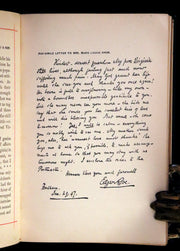 FAC-SIMILE LETTER TO MRS. MARIE LOUISE SHEW.
Kindest — dearest friend — My poor Virginia
still lives, although failing fast and now
suffering much pain. May God grant her life
until she sees you and thanks you once again!
Her bosom is full to overflowing — like my own —
with a boundless — inexpressible gratitude to you.
Lest she may never see you more — she bids me
say that she sends you her sweetest kiss of love
and will die blessing you. But come — oh come
to-morrow! Yes, I will be calm — everything
you so nobly wish to see me. My mother sends
you, also, her "warmest love and thanks." She begs
me to ask you, if possible, to make arrange-
ments at home so that you may stay with us
tomorrow night. I enclose the order to the
Postmaster.
Heaven bless you and farewell
Edgar A Poe.
Fordham,
Jan. 29. 47.